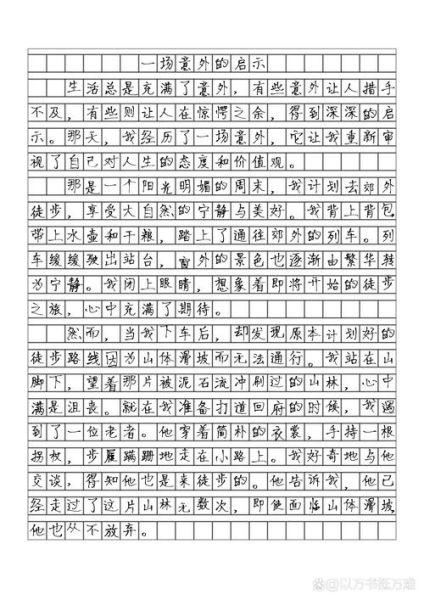 一场意外的启示
生活总是充满了意外，有些意外让人措手
不及，有些则让人在惊愕之余，得到深深的启
示。那天，我经历了一场意外，它让我重新审
视了自己对人生的态度和价值观。
那是一个阳光明媚的周末，我计划去郊外
徒步，享受大自然的宁静与美好。我背上背包
带上水壶和干粮，踏上了通往郊外的列车。列
车缓缓驶出站台，窗外的景色也逐渐由繁华转
为宁静。我闭上眼睛，想象着即将开始的徒步
之旅，心中充满了期待。
然而，当我下车后，却发现原本计划好的
徒步路线因为山体滑坡而无法通行。我站在山
脚下，望着那片被泥石流冲刷过的山林，心中
满是沮丧。就在我准备打道回府的时候，我遇
到了一位老者。他穿着简朴的衣裳，手持一根
拐杖，步履蹒跚地走在小路上。我好奇地与他
交谈，得知他也是来徒步的。他告诉我，他已
经走过了这片山林无数次，即使面临山体滑坡，
他也从不放弃。
@以万书张万难